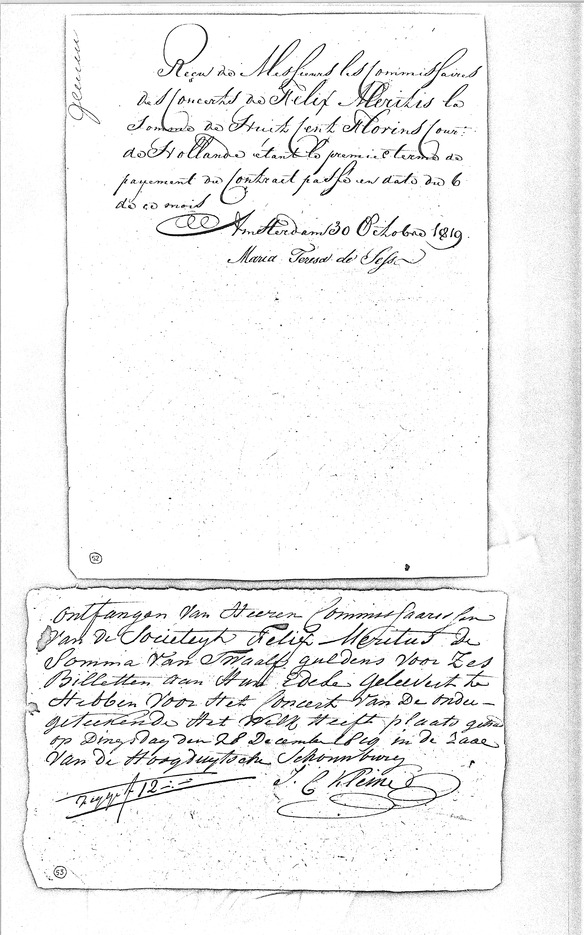 Reçu de Messieurs les Commissaires
des Concerts de Felix Meritis la
Somme de Huit Cent Florins Cour:
de Hollande étant le premier terme de
payement du Contrait passé en date du 6
de ce mois
Amsterdam 30 Octobre 1819.
Maria Teresa de Sess
52
ontfangen van Heeren Commissaarissen
van de Societeyt Felix Meritus de
Somma van Twaalf guldens voor Zes
Billetten aan Hun Edele Gelevert te
Hebben voor Het Concert van De onder-
geteekende Het Welk Heeft plaats
op Dingsdag den 28 December 1819 in de Zaal
van de Hoogduytsche Schouwburg
Zegge f 12
J. C Kleine
53